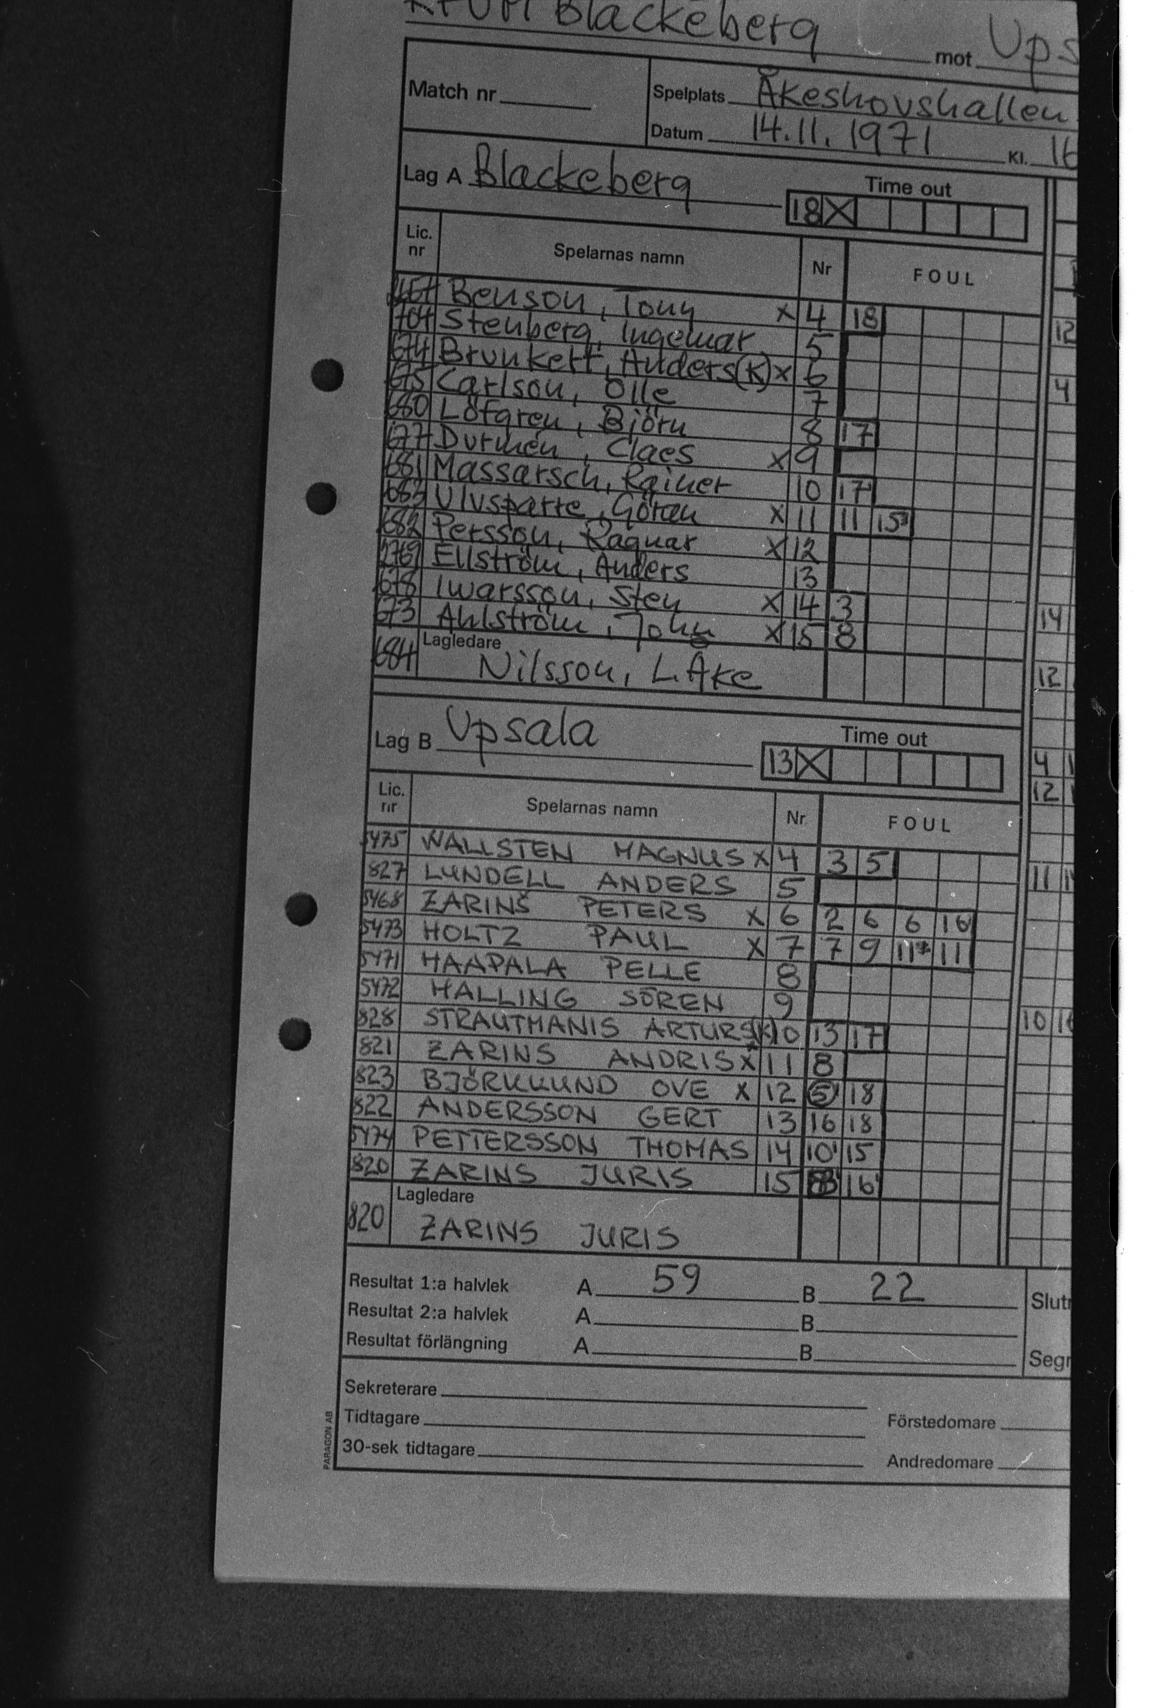 KFUM Blackeberg mot Ups
Match nr
Spelplats Åkeshovshallen
Datum 14.11.1971 Kl. 16
Lag A Blackeberg
Time out
18 X
Lic. nr Spelarnas namn Nr FOUL
Benson, Tony X 4 18
704 Stenberg, Ingemar 5
674 Brunkett, Anders (K) X 6
675 Carlson, Olle 7
680 Löfgren, Björn 8 17
677 Durmén, Claes X 9
681 Massarsch, Rainer 10 17
683 Ulvsparre, Göran X 11 11 15
682 Persson, Ragnar X 12
Ellström, Anders 13
678 Iwarsson, Sten X 14 3
673 Ahlström, John X 15 8
684 Lagledare Nilsson, L. Åke
Lag B Upsala
Time out
13 X
Lic. nr Spelarnas namn Nr FOUL
5475 WALLSTEN MAGNUS X 4 3 5
827 LUNDELL ANDERS 5
5468 ZARINS PETERS X 6 2 6 6 16
5473 HOLTZ PAUL X 7 7 9 11 11
5471 HAAPALA PELLE 8
5472 HALLING SÖREN 9
828 STRAUTMANIS ARTURS (K) 10 13 17
821 ZARINS ANDRIS X 11 8
823 BJÖRKLUND OVE X 12 5 18
822 ANDERSSON GERT 13 16 18
5474 PETTERSSON THOMAS 14 10 15
820 ZARINS JURIS 15 16
820 Lagledare ZARINS JURIS
Resultat 1:a halvlek A 59 B 22
Resultat 2:a halvlek A B
Resultat förlängning A B
Slutr
Segr
Sekreterare
Tidtagare
30-sek tidtagare
Förstedomare
Andredomare
PARAGON AB
12
4
14
12
4
12
11
10 16